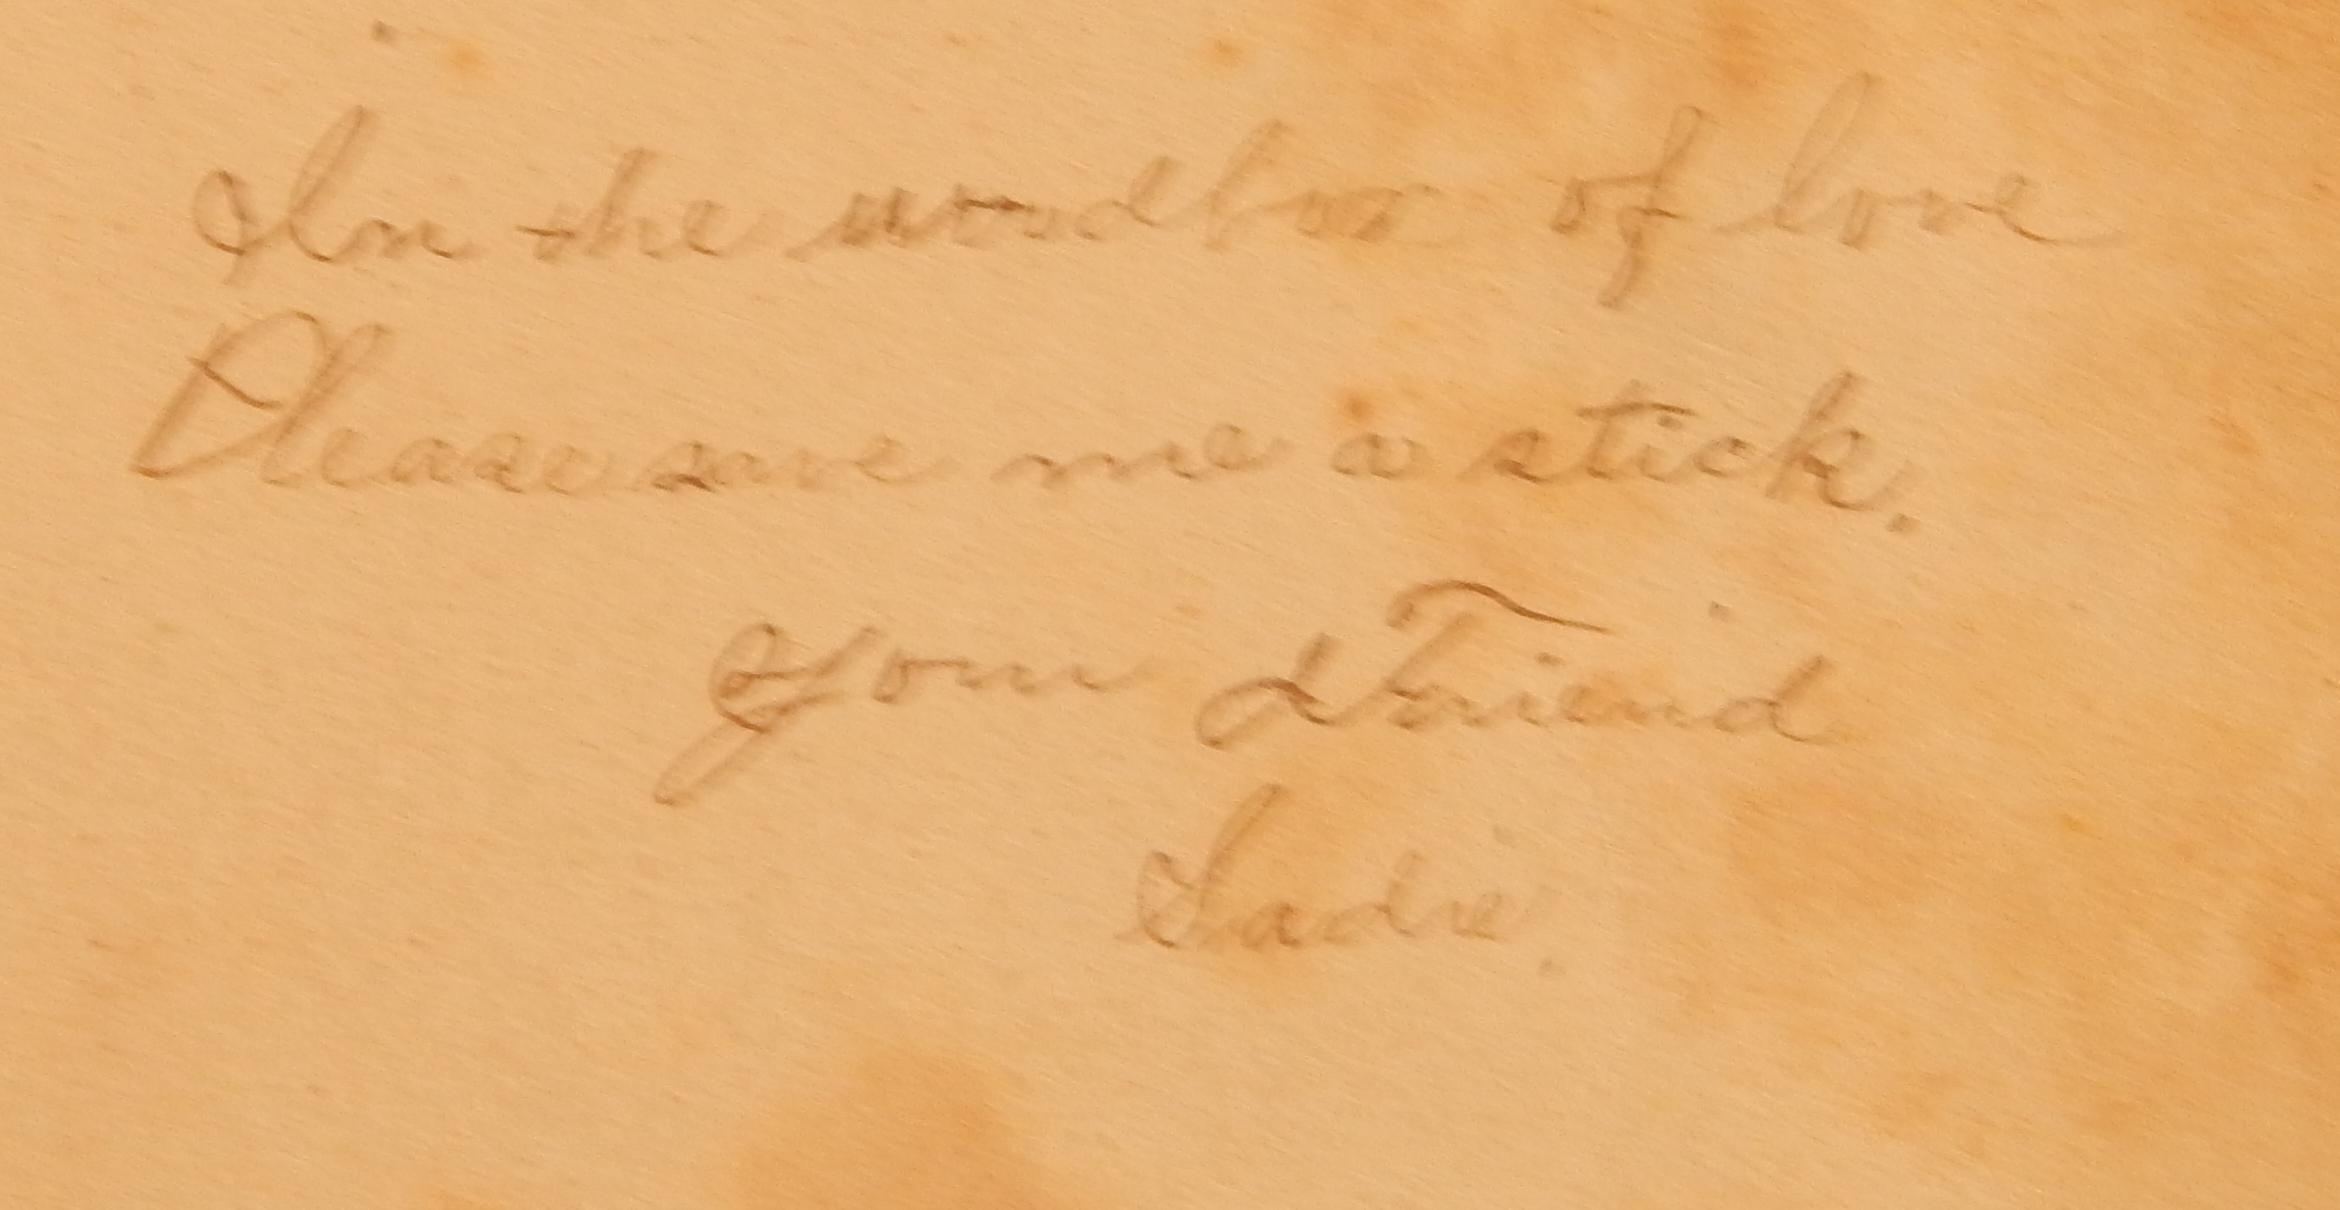 In the woodbox of love
Please save me a stick.
Your Friend
Sadie.